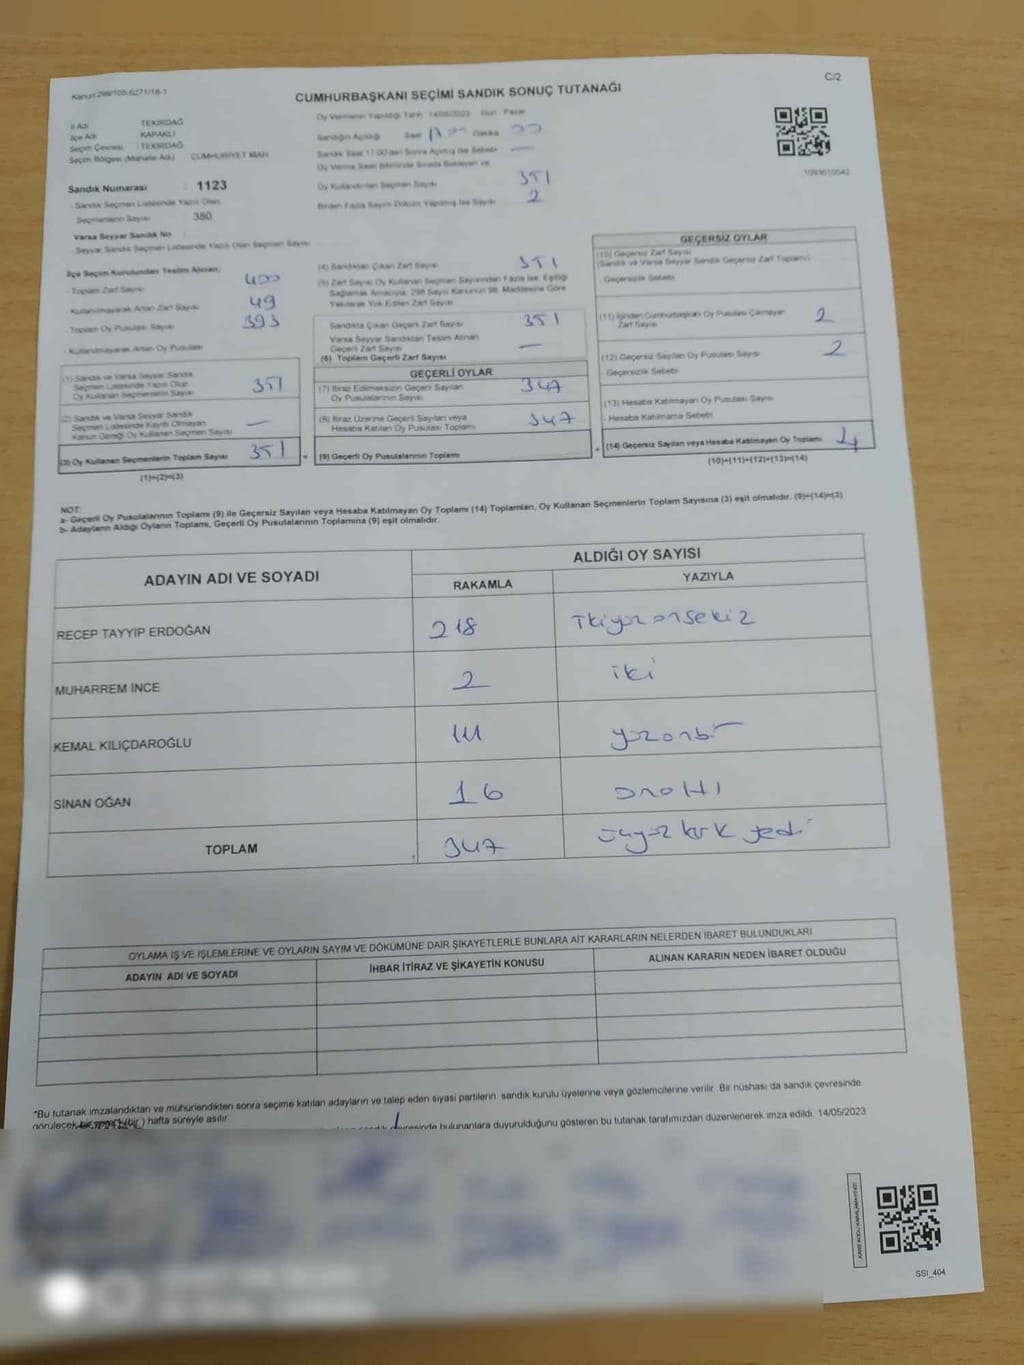 Kanun:298/105.6271/16-1
C/2
CUMHURBAŞKANI SEÇİMİ SANDIK SONUÇ TUTANAĞI
İl Adı TEKİRDAĞ
İlçe Adı KAPAKLI
Seçim Çevresi :TEKİRDAĞ
Seçim Bölgesi (Mahalle Adı) : CUMHURİYET MAH
Sandık Numarası : 1123
Sandık Seçmen Listesinde Yazılı Olan
Seçmenlerin Sayısı 380
Varsa Seyyar Sandık No :
Seyyar Sandık Seçmen Listesinde Yazılı Olan Seçmen Sayısı
Oy Vermenin Yapıldığı Tarih 14/05/2023 Gün Pazar
Sandığın Açıldığı Saat Dakika
Sandık Saat 17:00'den Sonra Açılmış İse Sebebi —
Oy Verme Saati Bitiminde Sırada Bekleyen ve
Oy Kullandırılan Seçmen Sayısı 351
Birden Fazla Sayım Döküm Yapılmış İse Sayısı 2
İlçe Seçim Kurulundan Teslim Alınan,
- Toplam Zarf Sayısı 400
- Kullanılmayarak Artan Zarf Sayısı 49
- Toplam Oy Pusulası Sayısı 393
- Kullanılmayarak Artan Oy Pusulası
(1) Sandık ve Varsa Seyyar Sandık
Seçmen Listesinde Yazılı Olup
Oy Kullanan Seçmenlerin Sayısı 351
(2) Sandık ve Varsa Seyyar Sandık
Seçmen Listesinde Kayıtlı Olmayan
Kanun Gereği Oy Kullanan Seçmen Sayısı —
(3) Oy Kullanan Seçmenlerin Toplam Sayısı 351
(1)+(2)=(3)
(4) Sandıktan Çıkan Zarf Sayısı 351
(5) Zarf Sayısı Oy Kullanan Seçmen Sayısından Fazla İse, Eşitliği
Sağlamak Amacıyla, 298 Sayılı Kanunun 98. Maddesine Göre
Yakılarak Yok Edilen Zarf Sayısı
Sandıkta Çıkan Geçerli Zarf Sayısı 351
Varsa Seyyar Sandıktan Teslim Alınan
Geçerli Zarf Sayısı —
(6) Toplam Geçerli Zarf Sayısı
GEÇERLİ OYLAR
(7) İtiraz Edilmeksizin Geçerli Sayılan
Oy Pusulalarının Sayısı 347
(8) İtiraz Üzerine Geçerli Sayılan veya
Hesaba Katılan Oy Pusulası Toplamı 347
(9) Geçerli Oy Pusulalarının Toplamı
GEÇERSİZ OYLAR
(10) Geçersiz Zarf Sayısı
(Sandık ve Varsa Seyyar Sandık Geçersiz Zarf Toplamı)
Geçersizlik Sebebi
(11) İçinden Cumhurbaşkanı Oy Pusulası Çıkmayan
Zarf Sayısı 2
(12) Geçersiz Sayılan Oy Pusulası Sayısı 2
Geçersizlik Sebebi
(13) Hesaba Katılmayan Oy Pusulası Sayısı
Hesaba Katılmama Sebebi
(14) Geçersiz Sayılan veya Hesaba Katılmayan Oy Toplamı 4
(10)+(11)+(12)+(13)=(14)
NOT:
a- Geçerli Oy Pusulalarının Toplamı (9) ile Geçersiz Sayılan veya Hesaba Katılmayan Oy Toplamı (14) Toplamları, Oy Kullanan Seçmenlerin Toplam Sayısına (3) eşit olmalıdır. (9)+(14)=(3)
b- Adayların Aldığı Oyların Toplamı, Geçerli Oy Pusulalarının Toplamına (9) eşit olmalıdır.
ADAYIN ADI VE SOYADI
ALDIĞI OY SAYISI
RAKAMLA YAZIYLA
RECEP TAYYİP ERDOĞAN 218 İkiyüzonsekiz
MUHARREM İNCE 2 iki
KEMAL KILIÇDAROĞLU 111 yüzonbir
SİNAN OĞAN 16 onaltı
TOPLAM 347 üçyüz kırk yedi
OYLAMA İŞ VE İŞLEMLERİNE VE OYLARIN SAYIM VE DÖKÜMÜNE DAİR ŞİKAYETLERLE BUNLARA AİT KARARLARIN NELERDEN İBARET BULUNDUKLARI
ADAYIN ADI VE SOYADI İHBAR İTİRAZ VE ŞİKAYETİN KONUSU ALINAN KARARIN NEDEN İBARET OLDUĞU
*Bu tutanak imzalandıktan ve mühürlendikten sonra seçime katılan adayların ve talep eden siyasi partilerin sandık kurulu üyelerine veya gözlemcilerine verilir. Bir nüshası da sandık çevresinde
görülecek bir yere (bir ) hafta süreyle asılır.
bulunanlara duyurulduğunu gösteren bu tutanak tarafımızdan düzenlenerek imza edildi. 14/05/2023
SSI_404